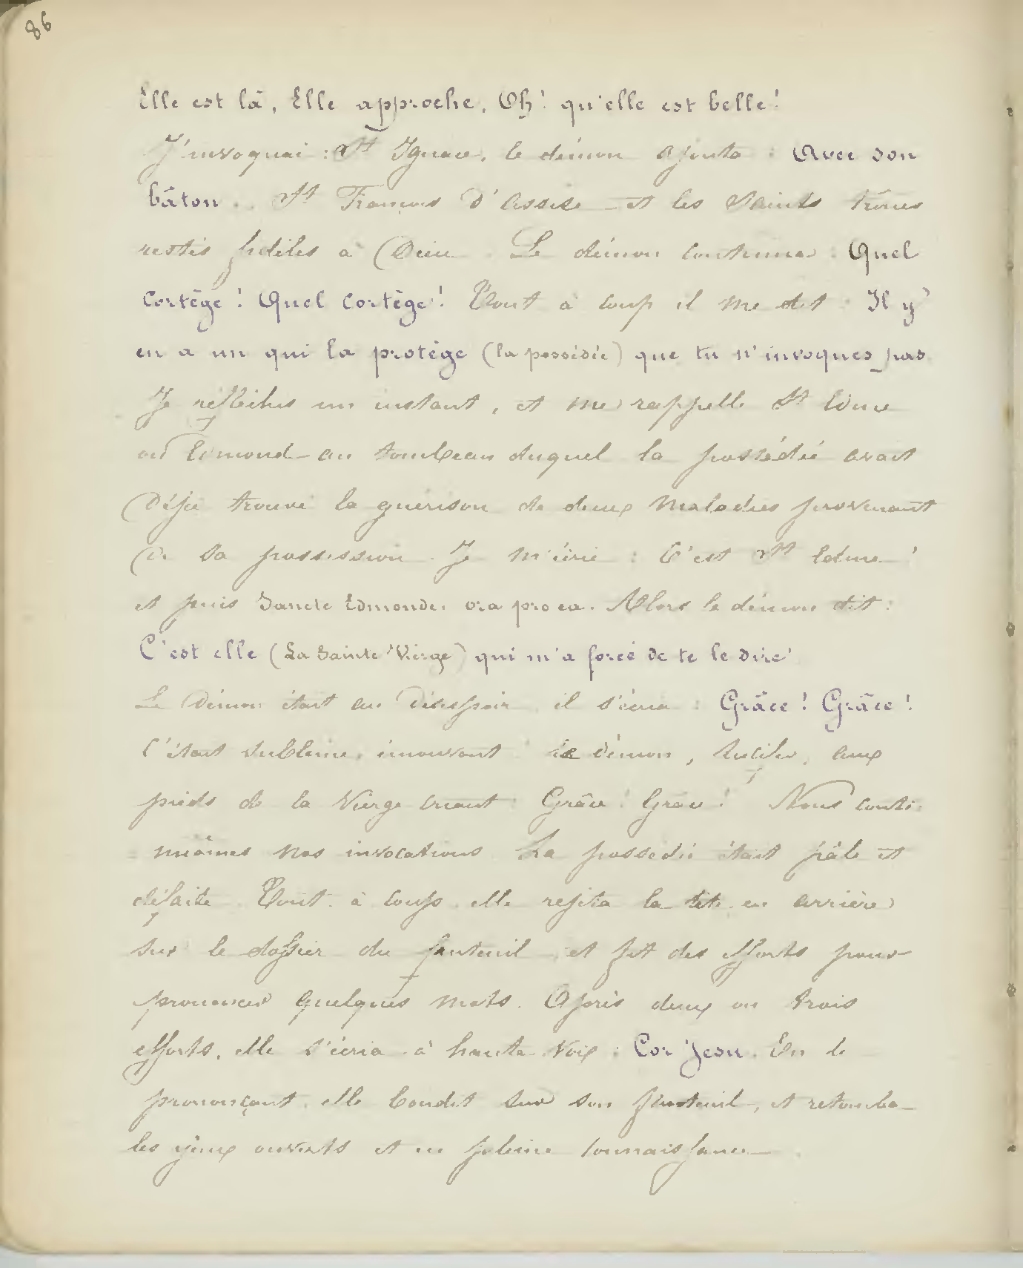 86
Elle est là, Elle approche, Oh! qu'elle est belle!
J'invoquai : St Ignace, le démon ajouta : Avec son
bâton.. St François d'Assise et les Saints trônes
restés fidèles à Dieu. Le démon continua : Quel
cortège! Quel cortège! Tout à coup il me dit : Il y
en a un qui la protège (la possédée) que tu n'invoques pas
Je réfléchis un instant, et me rappelle St Edme
ou Edmond au tombeau duquel la possédée avait
Déjà trouvé la guérison de deux maladies provenant
de sa possession. Je m'écrie : C'est St Edme!
et puis Sancte Edmonde, ora pro ea. Alors le démon dit :
C'est elle (La Sainte Vierge) qui m'a forcé de te le dire!
Le Démon étant au Désespoir, il s'écria : Grâce! Grâce!
C'était sublime, émouvant! le démon, Lucifer, aux
pieds de la Vierge criant : Grâce! Grâce! Nous conti-
nuâmes nos invocations. La possédée était pâle et
défaite. Tout à coup, elle rejeta la tête en arrière
sur le dossier du fauteuil, et fit des efforts pour
prononcer quelques mots. Après deux ou trois
efforts, elle s'écria à haute voix : Cor Jesu. En le
prononçant, elle bondit sur son fauteuil, et retomba
les yeux ouverts et en pleine connaissance